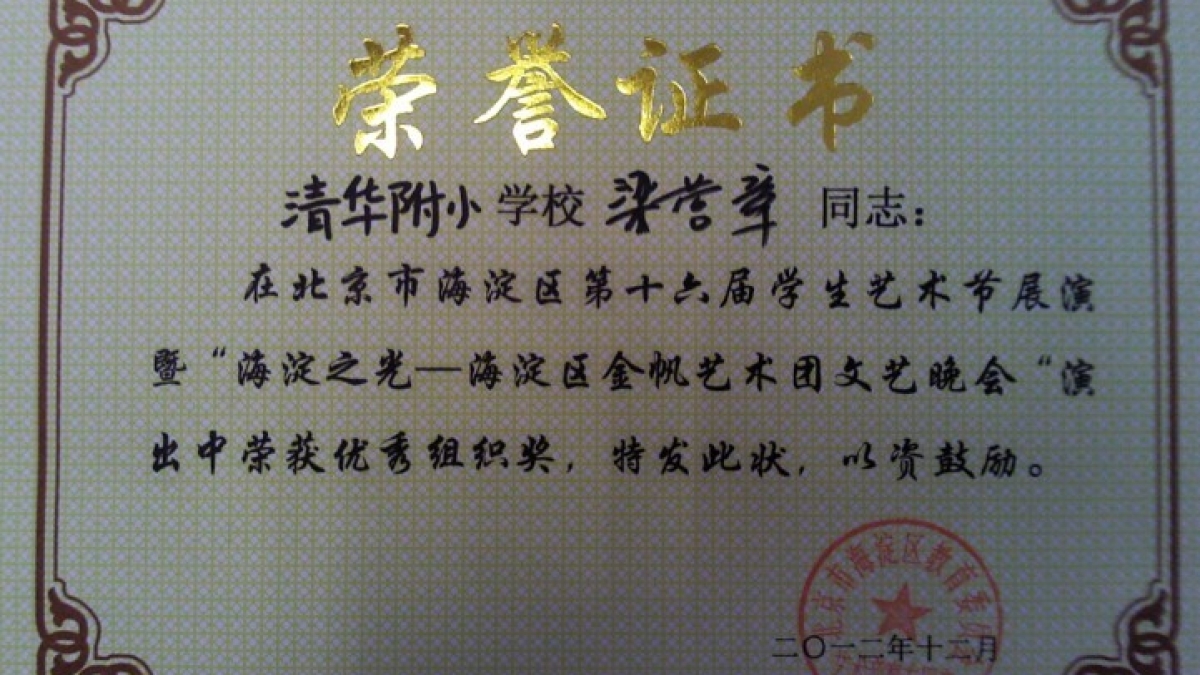 荣誉证书
清华附小学校 梁营章 同志：
在北京市海淀区第十六届学生艺术节展演
暨“海淀之光—海淀区金帆艺术团文艺晚会“演
出中荣获优秀组织奖，特发此状，以资鼓励。
北京市海淀区教育委
二〇一二年十二月